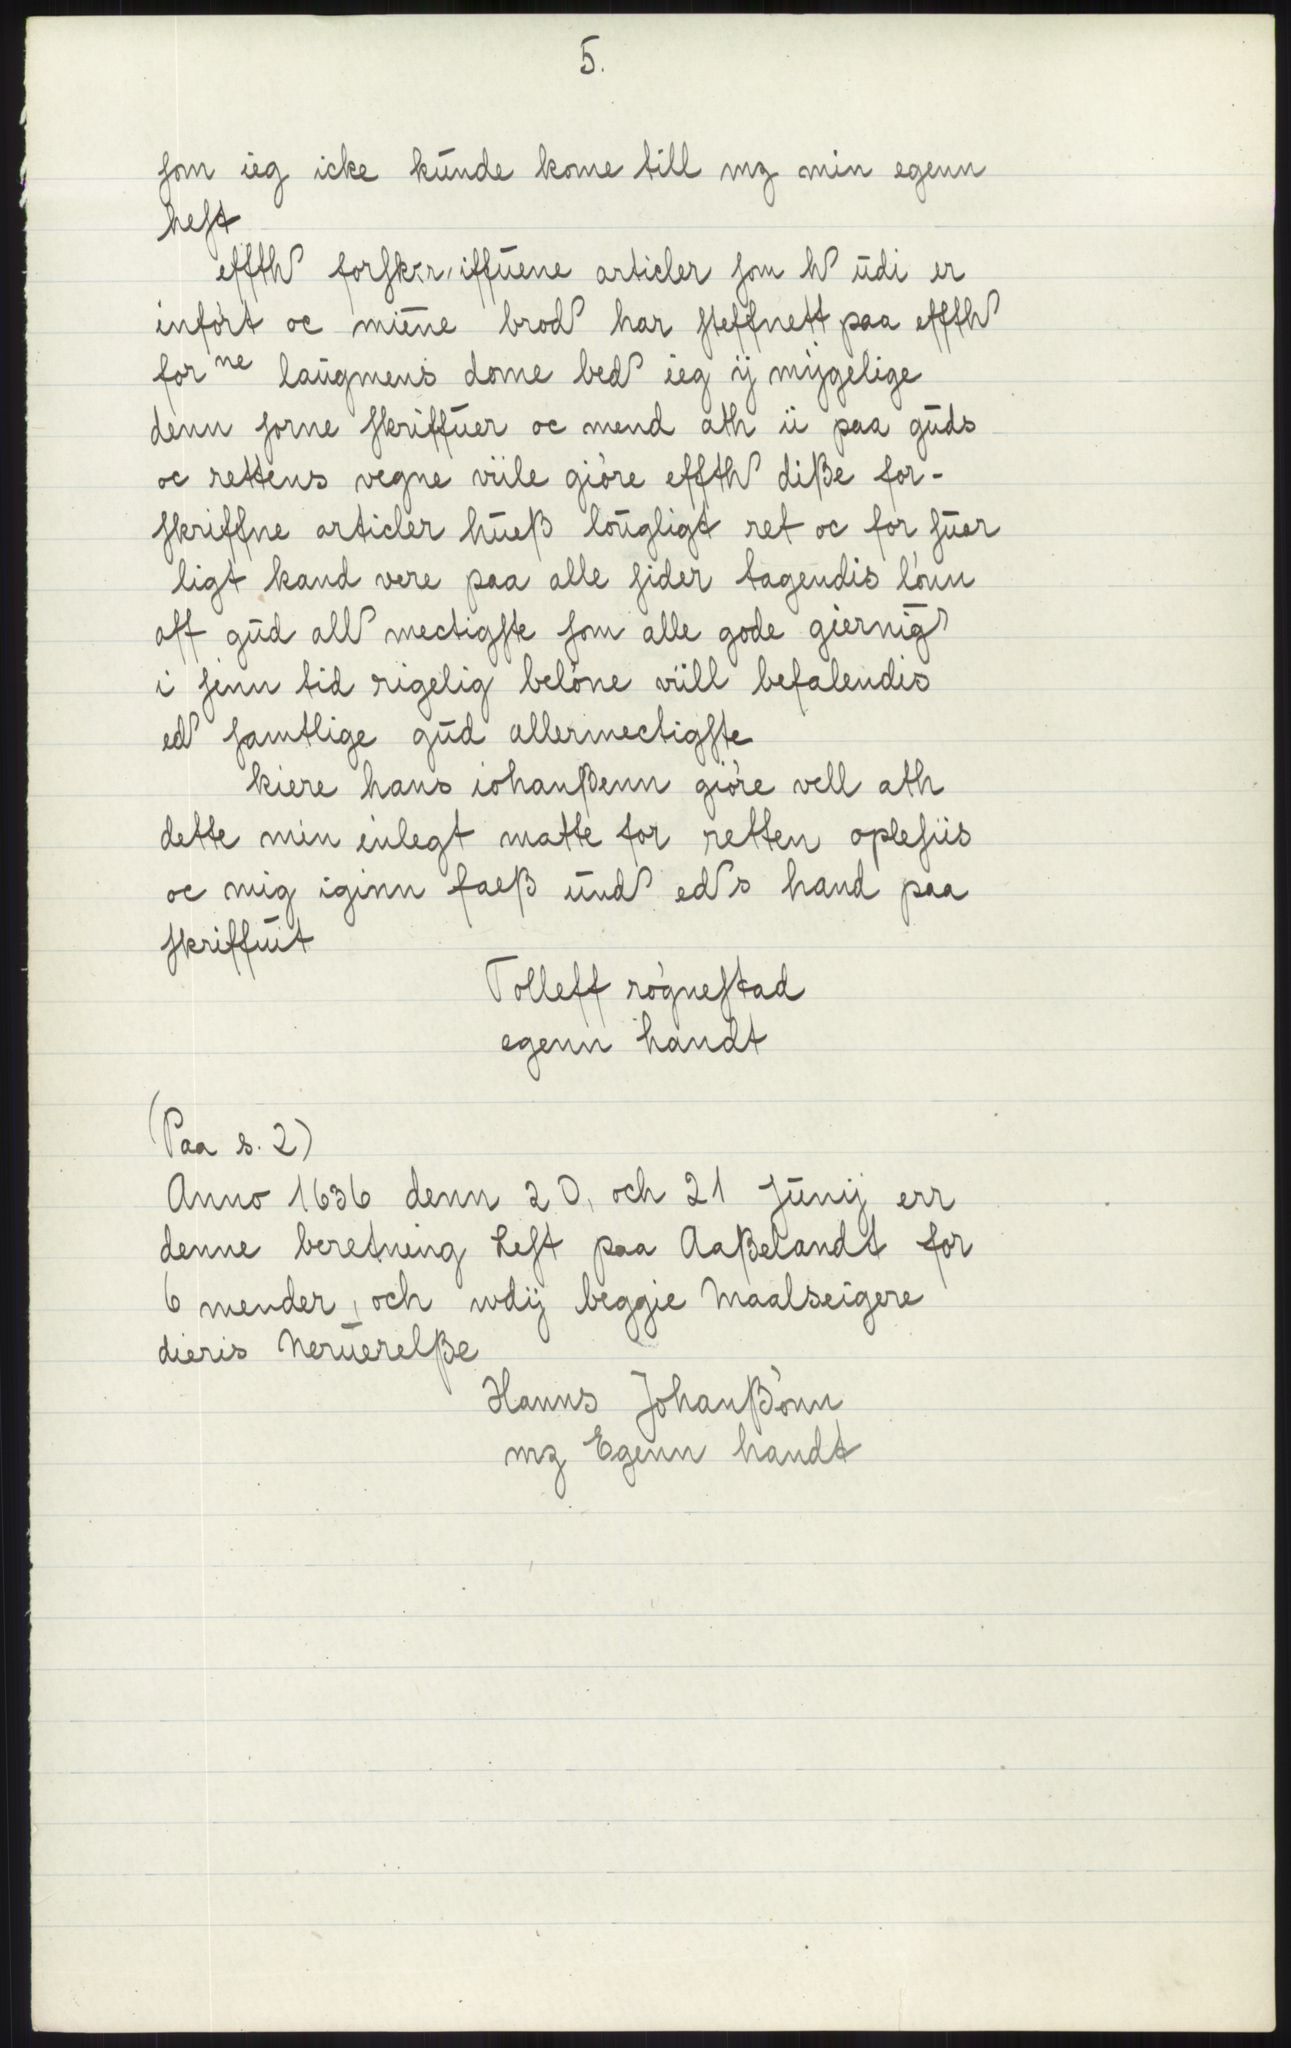 5.
som ieg icke kunde kome till mz min egenn
hest
effth forskr, iffuene articler som h udi er
infört oc miene brod har steffnett paa effth
for ne laugmens dome bed ieg ij mijgelige
denn sorne skriffuer oc mend ath ii paa guds
oc rettens vegne viile giöre effth diße for-
skriffne articler hueß lougligt ret oc for suar
ligt kand vere paa alle sider tagendis lönn
aff gud all mectigste som alle gode gierning
i sinn tid rigelig belöne viill befalendis
ed samtlige gud allermectigste
kiere hans iohanßenn giöre vell ath
dette min inlegt matte for retten oplesiis
oc mig iginn faeß und eds hand paa
skriffuit
Tolleff rögnestad
egenn handt
(Paa s. 2)
Anno 1636 denn 20, och 21 Junij err
denne beretning lest paa Aaßelandt for
6 mender, och wdij beggie Maalseigere
dieris Neruerelße
Hanns Johanßönn
mz Egenn handt